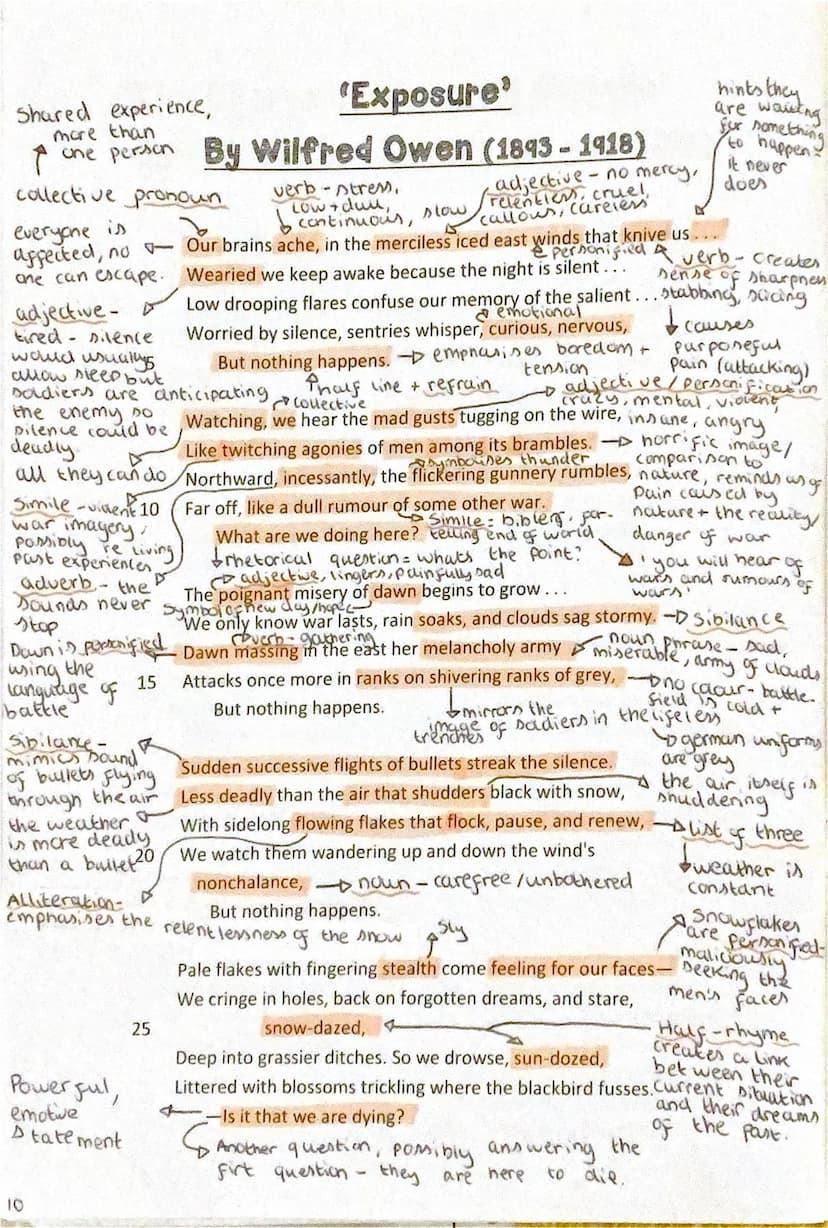 'Exposure'
By Wilfred Owen (1893 - 1918)
Shared experience,
more than
one person
collective pronoun
verb - stress,
low + dull,
continuous, slow
adjective - no mercy,
relentless, cruel,
callous, careless
hints they
are waiting
for something
to happen -
it never
does
everyone is
affected, no
one can escape.
Our brains ache, in the merciless iced east winds that knive us . . .
personified
Wearied we keep awake because the night is silent . . .
verb - creates
sense of sharpness
stabbing, slicing
causes
purposeful
pain (attacking)
Low drooping flares confuse our memory of the salient . . .
emotional
Worried by silence, sentries whisper, curious, nervous,
But nothing happens.
emphasises boredom +
tension
half line + refrain
adjective -
tired - silence
would usually
allow sleep but
soldiers are anticipating
the enemy so
silence could be
deadly.
5
collective
adjective / personification
crazy, mental, violent,
insane, angry
Watching, we hear the mad gusts tugging on the wire,
Like twitching agonies of men among its brambles.
horrific image/
comparison to
nature, reminds us of
pain caused by
nature + the reality/
danger of war
all they can do
symbolises thunder
Northward, incessantly, the flickering gunnery rumbles,
Simile - violent
war imagery,
possibly re living
past experiences
10
Far off, like a dull rumour of some other war.
Simile: biblery, for-
telling end of world
What are we doing here?
'you will hear of
wars and rumours of
wars'
rhetorical question = whats the point?
adverb - the
sounds never
stop
adjective, lingers, painfully sad
The poignant misery of dawn begins to grow . . .
symbol of new day/hope
We only know war lasts, rain soaks, and clouds sag stormy.
Sibilance
verb - gathering
Dawn is personified
using the
language of
battle
Dawn massing in the east her melancholy army
noun phrase - sad,
miserable, army of clouds
15
Attacks once more in ranks on shivering ranks of grey,
no colour - battle-
field is cold +
lifeless
But nothing happens.
mirrors the
image of soldiers in the
trenches
german uniforms
are grey
Sibilance -
mimics sound
of bullets flying
through the air
Sudden successive flights of bullets streak the silence.
Less deadly than the air that shudders black with snow,
the air itself is
shuddering
the weather
is more deadly
than a bullet
With sidelong flowing flakes that flock, pause, and renew,
list of three
weather is
constant
20
We watch them wandering up and down the wind's
nonchalance,
noun - carefree / unbothered
But nothing happens.
Alliteration -
emphasises the
relentlessness of the snow
sly
Snowflakes
are personified -
maliciously
seeking the
men's faces
Pale flakes with fingering stealth come feeling for our faces—
We cringe in holes, back on forgotten dreams, and stare,
25
snow-dazed,
Half-rhyme
creates a link
between their
current situation
and their dreams
of the past.
Deep into grassier ditches. So we drowse, sun-dozed,
Littered with blossoms trickling where the blackbird fusses.
—Is it that we are dying?
Powerful,
emotive
statement
Another question, possibly answering the
firt question - they are here to die.
10